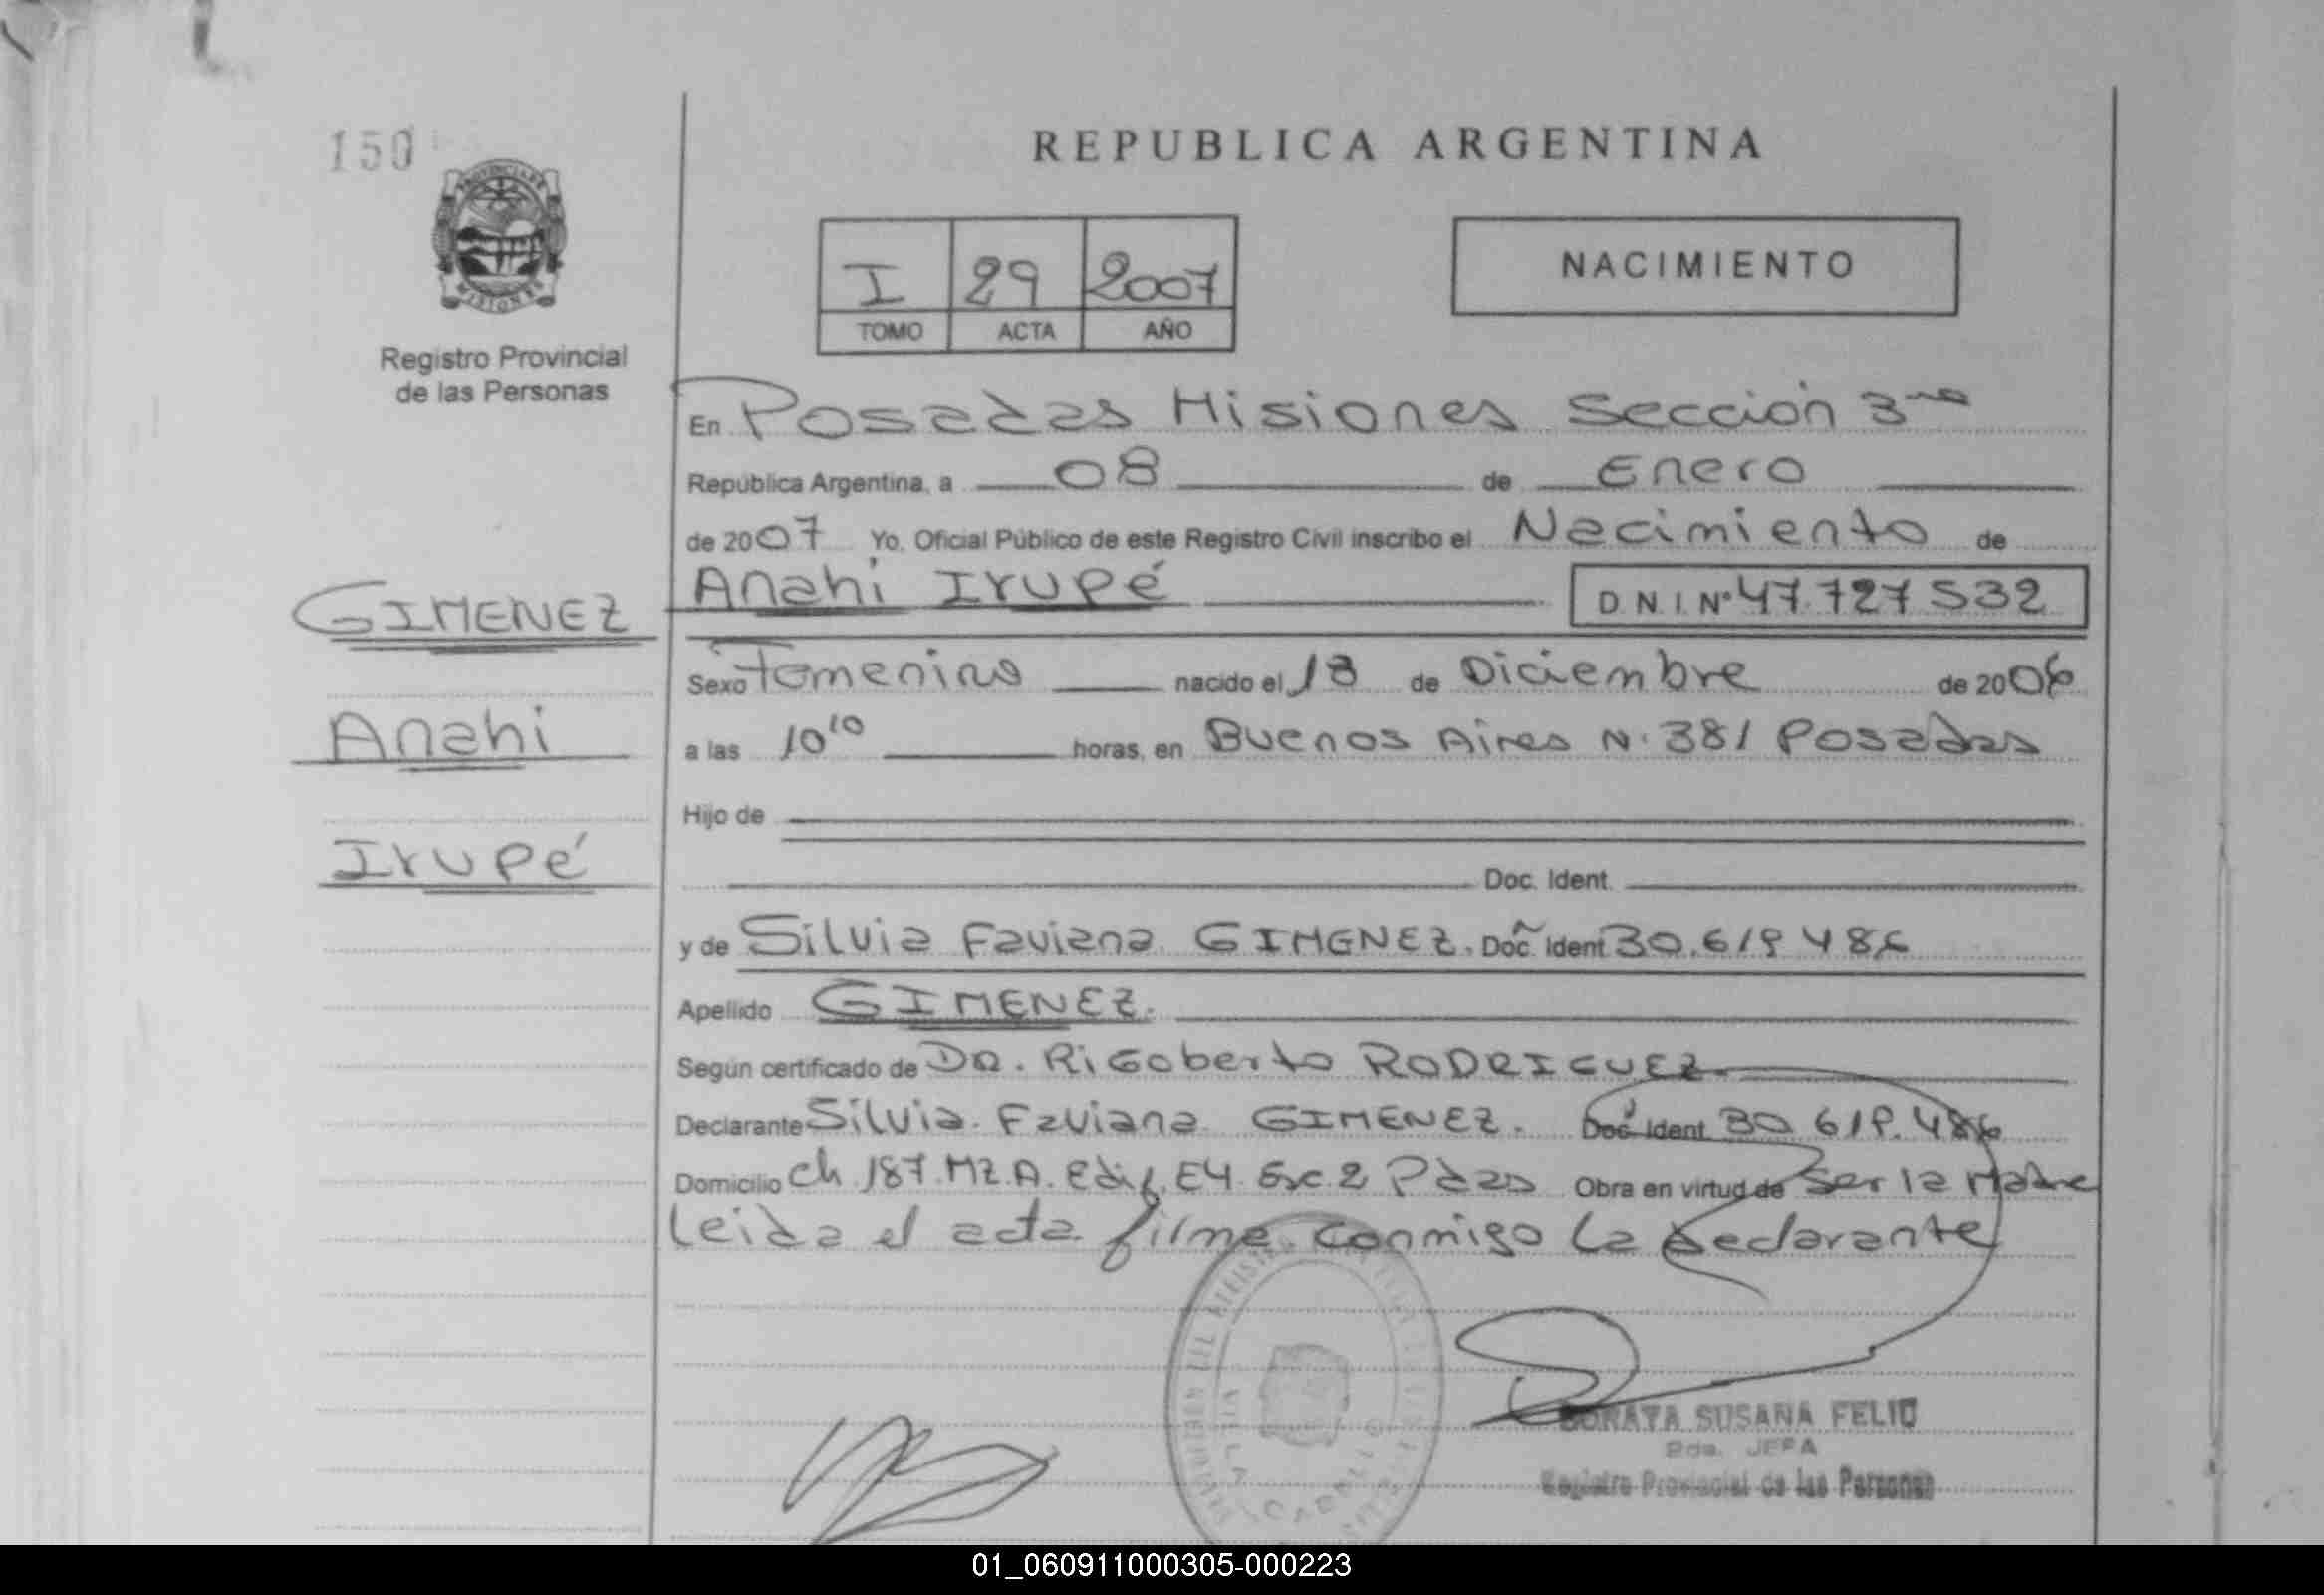 150
REPUBLICA ARGENTINA
I 29 2007
TOMO ACTA AÑO
NACIMIENTO
MISIONES
Registro Provincial
de las Personas
En Posadas Misiones Sección 3ra
República Argentina, a 08 de Enero
de 2007 Yo, Oficial Público de este Registro Civil inscribo el Nacimiento de
Anahi Irupé D.N.I. Nº 47.727532
GIMENEZ
Anahi
Irupé
Sexo Femenino nacido el 18 de Diciembre de 2006
a las 10 10 horas, en Buenos Aires N. 381 Posadas
Hijo de
Doc. Ident.
y de Silvia Faviana GIMENEZ. Doc. Ident 30.619486
Apellido GIMENEZ.
Según certificado de DR. Rigoberto RODRIGUEZ
Declarante Silvia Faviana GIMENEZ. Doc. Ident 30.619.486
Domicilio Ch 187 MZ.A. Edif. E4 Esc. 2 Pdas Obra en virtud de Ser la Madre
Leida el acta firma conmigo la declarante
SUSANA FELIU
2da. JEFA
Registro Provincial de las Personas
01_060911000305-000223